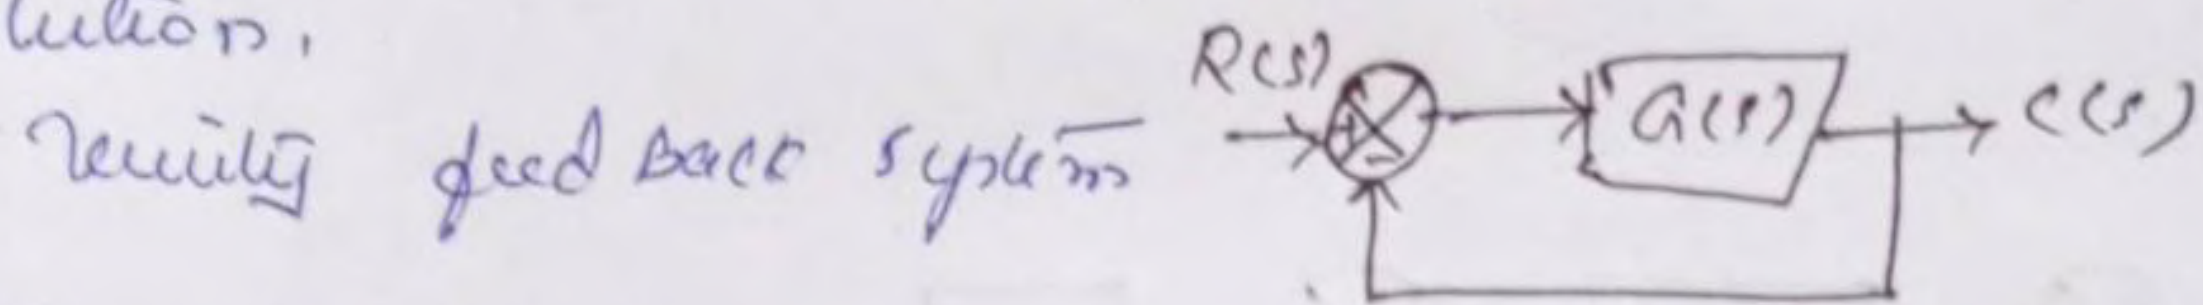 lution.
unity feed back system
R(s)
+
-
G(s)
C(s)